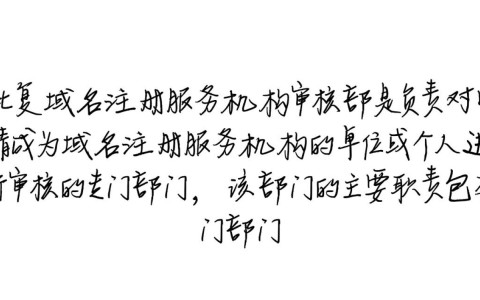 夏域名注册服务机构审核部是负责对
请成为域名注册服务机构的单位或个人进
审核的专门部门，该部门的主要职责包
门部门